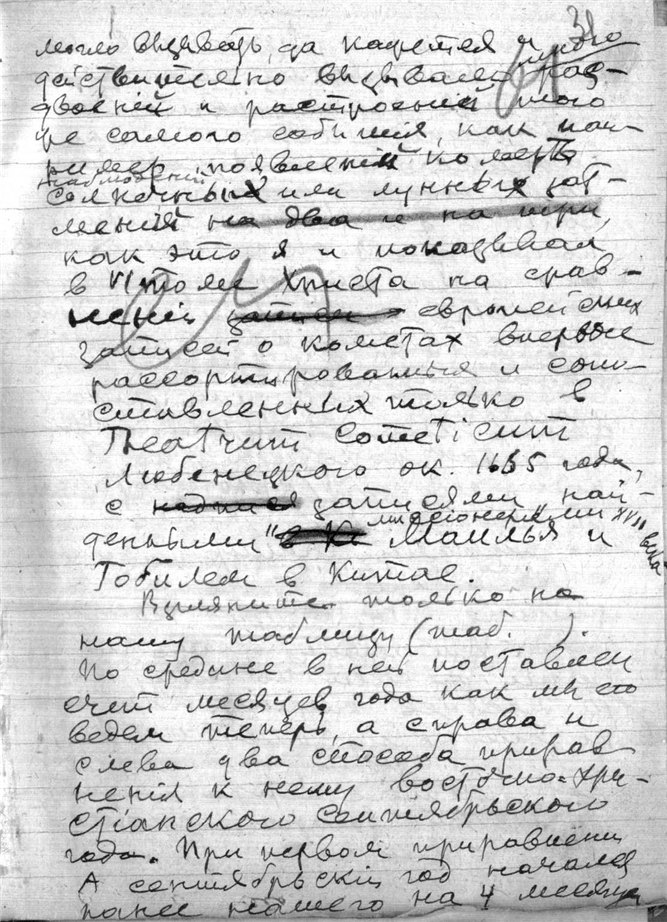 31
могло вызывать, да кажется и
действительно вызывает раз-
двоений и расстроений того
же самого события, как на-
пример появлений кометъ
наблюдений
солнечных или лунных зат-
мений на два и на три,
как это я и показывал
в VI томе Христа на срав-
нении записи европейских
записей о кометах впервые
рассортированных и сопо-
ставленных только в
Theatrum Cometicum
Любенецкого ок. 1665 года,
с записями най-
денными "миссионерами XVIII века
Маилья и
Гобилем в Китае.
Взгляните только на
нашу таблицу (таб. ).
По средине в ней поставлен
счет месяцев года как мы его
ведем теперь, а справа и
слева два способа прирав
нения к нему восточно-хри-
стіанского сентябрьского
года. При первом приравнении
А сентябрьскій год начался
ранее нашего на 4 месяца